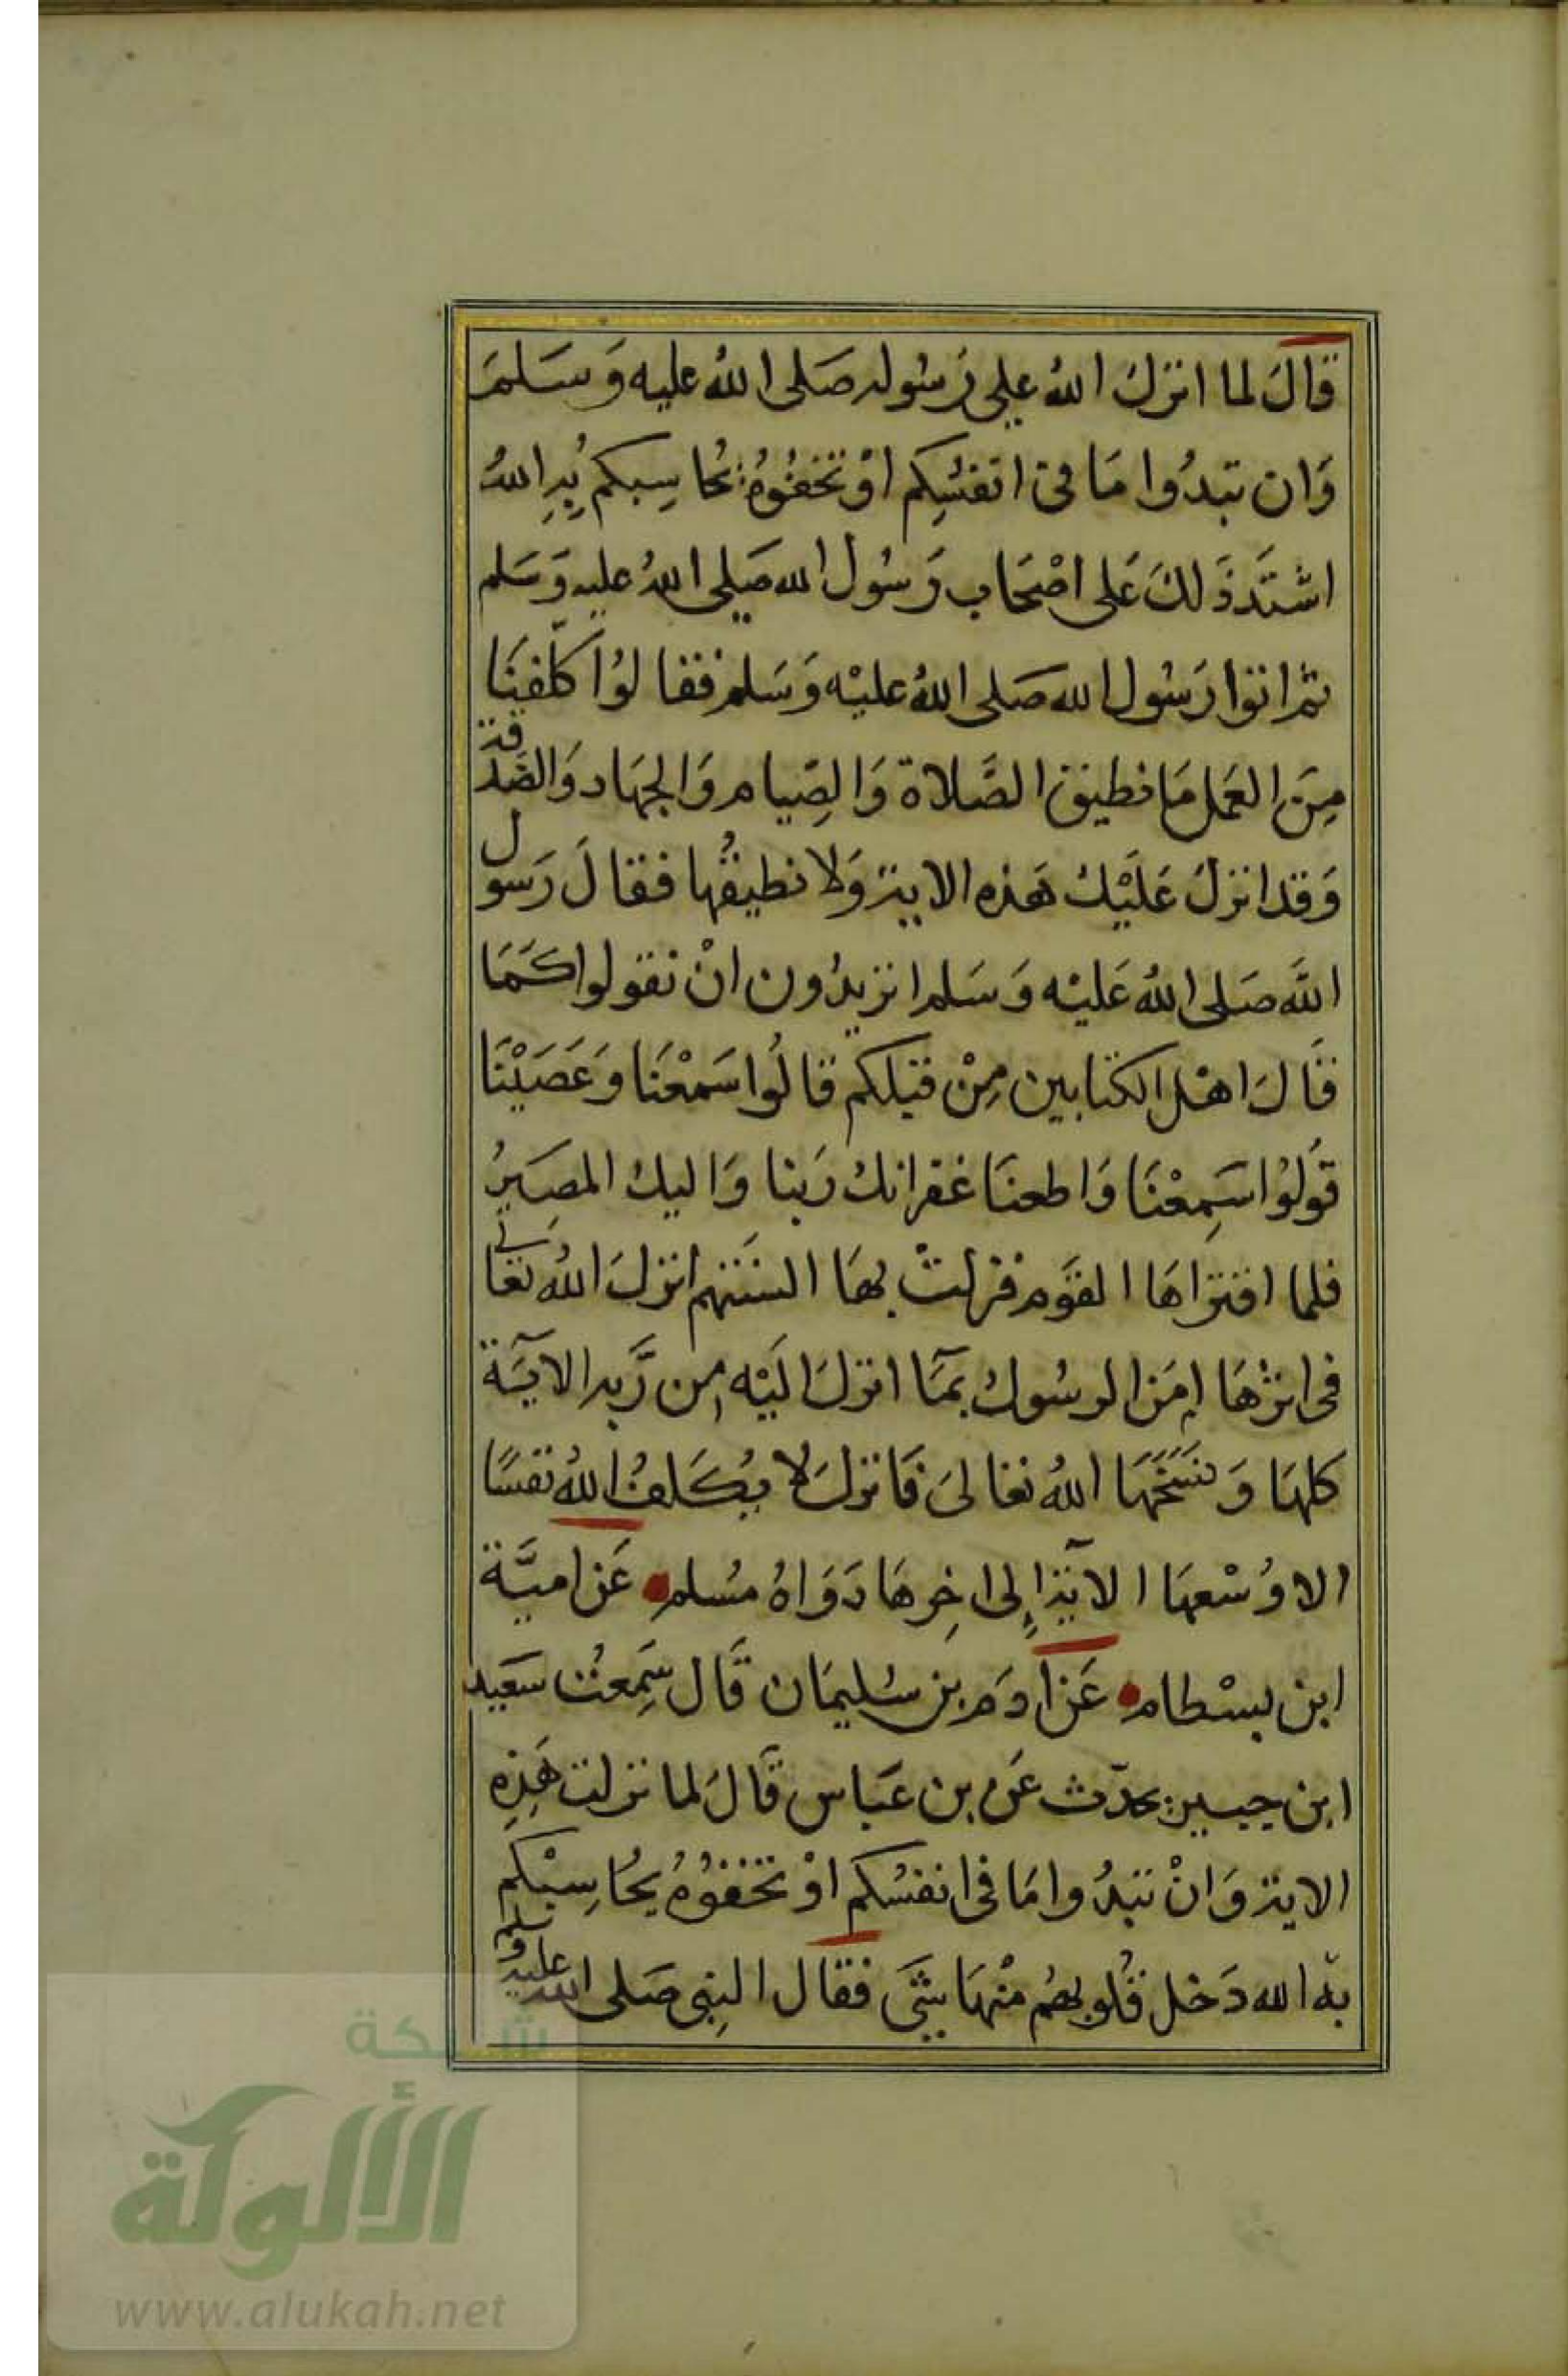 قالَ لما انزلَ اللهُ على رَسُوله صَلى اللهُ عليه وَسَلمَ
وَان تبدُوا مَا فى انفسِكم اوْ تخفُوهُ يحُاسِبكم بِهِ اللهُ
اشتَدَ ذَلكَ عَلى اصْحَاب رَسُول الله صَلى اللهُ عليه وَسَلم
ثم اتوا رَسُول الله صَلى اللهُ عليْه وَسَلم فقالوُا كلّفنَا
مِنَ العَمل مَا نطيق الصَّلاة وَالصِّيام وَالجهَاد وَالصَّدقة
وَقد انزلَ عَليْكَ هَذه الاية وَلا نطيقُها فقالَ رَسول
اللَّه صَلى اللهُ عَليْه وَسَلم اتريدُون انْ تقولوا كَمَا
قالَ اهْل الكتابين مِنْ قبلكم قالوُا سَمعْنَا وَعَصَيْنَا
قوُلوُا سَمِعْنَا وَاطعنَا غفرانك رَبنا وَاليك المصِيَرُ
فلما اقتراهَا القوَم فزلتْ بهَا السنتهم انزلَ اللهُ تعالى
فى اثرهَا امَن الرسُولُ بمَآ انزلَ اليْه من رَّبه الآيَة
كلهَا وَنسَخَهَا اللهُ تعالىَ فَانزلَ لا يُكَلفُ اللهُ نفسًا
الا وُسْعهَا الآية اِلى اخِرهَا رَوَاهُ مُسلم عَن اميَّة
ابن بسْطام عَن ادَم بن سُليمَان قَال سَمِعتُ سَعيد
ابن جبير يحدّث عَن بن عَباس قَالَ لما نزلت هَذِه
الاية وَانْ تبدُوا مَا فى انفسُكم اوْ تخفوُهُ يحُاسِبْكم
به الله دَخل قلُوبهمُ منْهَا شَيَ فقال النِبى صَلى الله عليه وسلم
شبكة
الألوكة
www.alukah.net